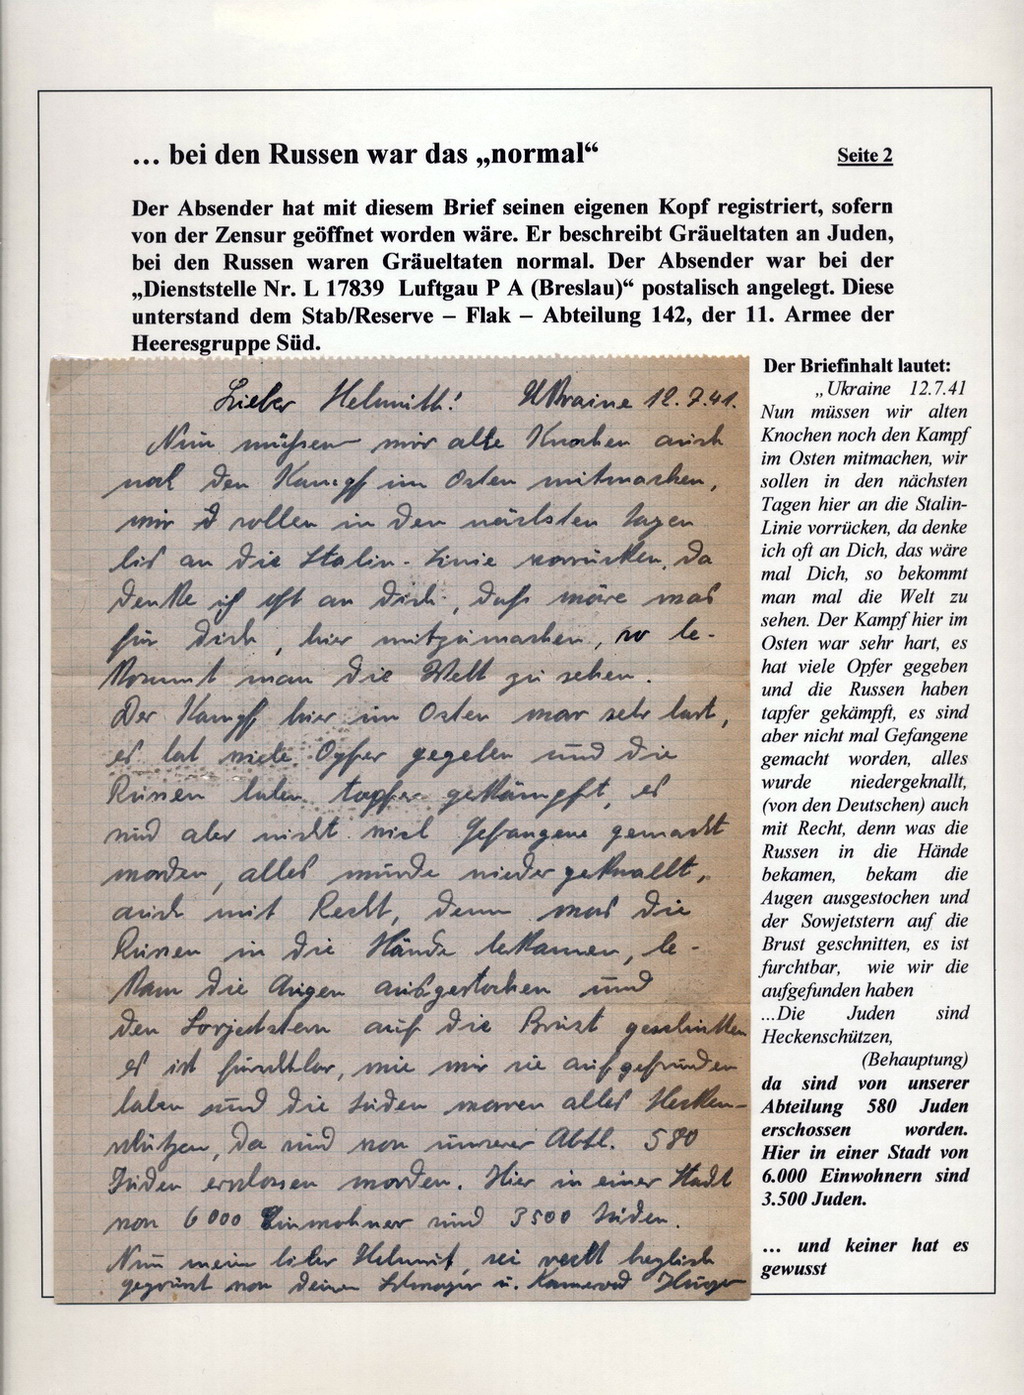 ... bei den Russen war das „normal“
Seite 2
Der Absender hat mit diesem Brief seinen eigenen Kopf registriert, sofern
von der Zensur geöffnet worden wäre. Er beschreibt Gräueltaten an Juden,
bei den Russen waren Gräueltaten normal. Der Absender war bei der
„Dienststelle Nr. L 17839 Luftgau P A (Breslau)“ postalisch angelegt. Diese
unterstand dem Stab/Reserve – Flak – Abteilung 142, der 11. Armee der
Heeresgruppe Süd.
Lieber Helmuth! Ukraine 12.7.41.
Nun müssen wir alte Knochen auch
noch den Kampf im Osten mitmachen,
wir sollen in den nächsten Tagen
bis an die Stalin-Linie vorrücken, da
denke ich oft an dich, daß wäre was
für dich, hier mitzumachen, so be-
kommt man die Welt zu sehen.
Der Kampf hier im Osten war sehr hart,
es hat viele Opfer gegeben und die
Russen haben tapfer gekämpft, es
sind aber nicht viel Gefangene gemacht
worden, alles wurde niedergeknallt,
auch mit Recht, denn was die
Russen in die Hände bekamen, be-
kam die Augen ausgestochen und
den Sowjetstern auf die Brust geschnitten
es ist furchtbar, wie wir sie aufgefunden
haben und die Juden waren alles Hecken-
schützen, da sind von unserer Abtl. 580
Juden erschossen worden. Hier in einer Stadt
von 6000 Einwohner sind 3500 Juden.
Nun mein lieber Helmut, sei recht herzlich
gegrüsst von deinen Schwager u. Kamerad
Der Briefinhalt lautet:
„Ukraine 12.7.41
Nun müssen wir alten
Knochen noch den Kampf
im Osten mitmachen, wir
sollen in den nächsten
Tagen hier an die Stalin-
Linie vorrücken, da denke
ich oft an Dich, das wäre
mal Dich, so bekommt
man mal die Welt zu
sehen. Der Kampf hier im
Osten war sehr hart, es
hat viele Opfer gegeben
und die Russen haben
tapfer gekämpft, es sind
aber nicht mal Gefangene
gemacht worden, alles
wurde niedergeknallt,
(von den Deutschen) auch
mit Recht, denn was die
Russen in die Hände
bekamen, bekam die
Augen ausgestochen und
der Sowjetstern auf die
Brust geschnitten, es ist
furchtbar, wie wir die
aufgefunden haben
...Die Juden sind
Heckenschützen,
(Behauptung)
da sind von unserer
Abteilung 580 Juden
erschossen worden.
Hier in einer Stadt von
6.000 Einwohnern sind
3.500 Juden.
... und keiner hat es
gewusst